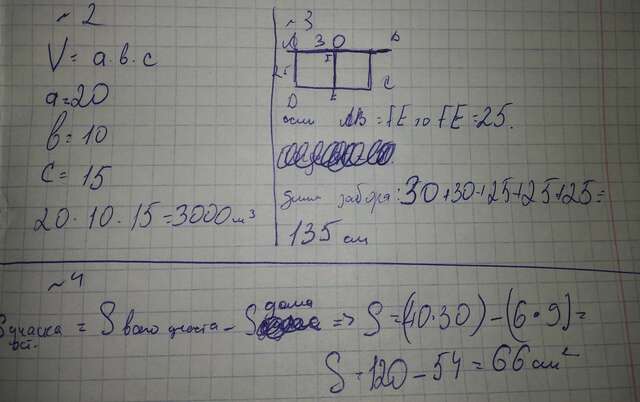 ~2
V = a·b·c
a=20
b=10
c=15
20·10·15=3000 м³
~3
A 30 B
I
25
D E C
если AB = FE, то FE=25.
длина забора: 30+30+25+25+25=
135 см
~4
S участка ост. = S всего участа - S дома => S=(40·30)-(6·9)=
S=120-54=66 см²